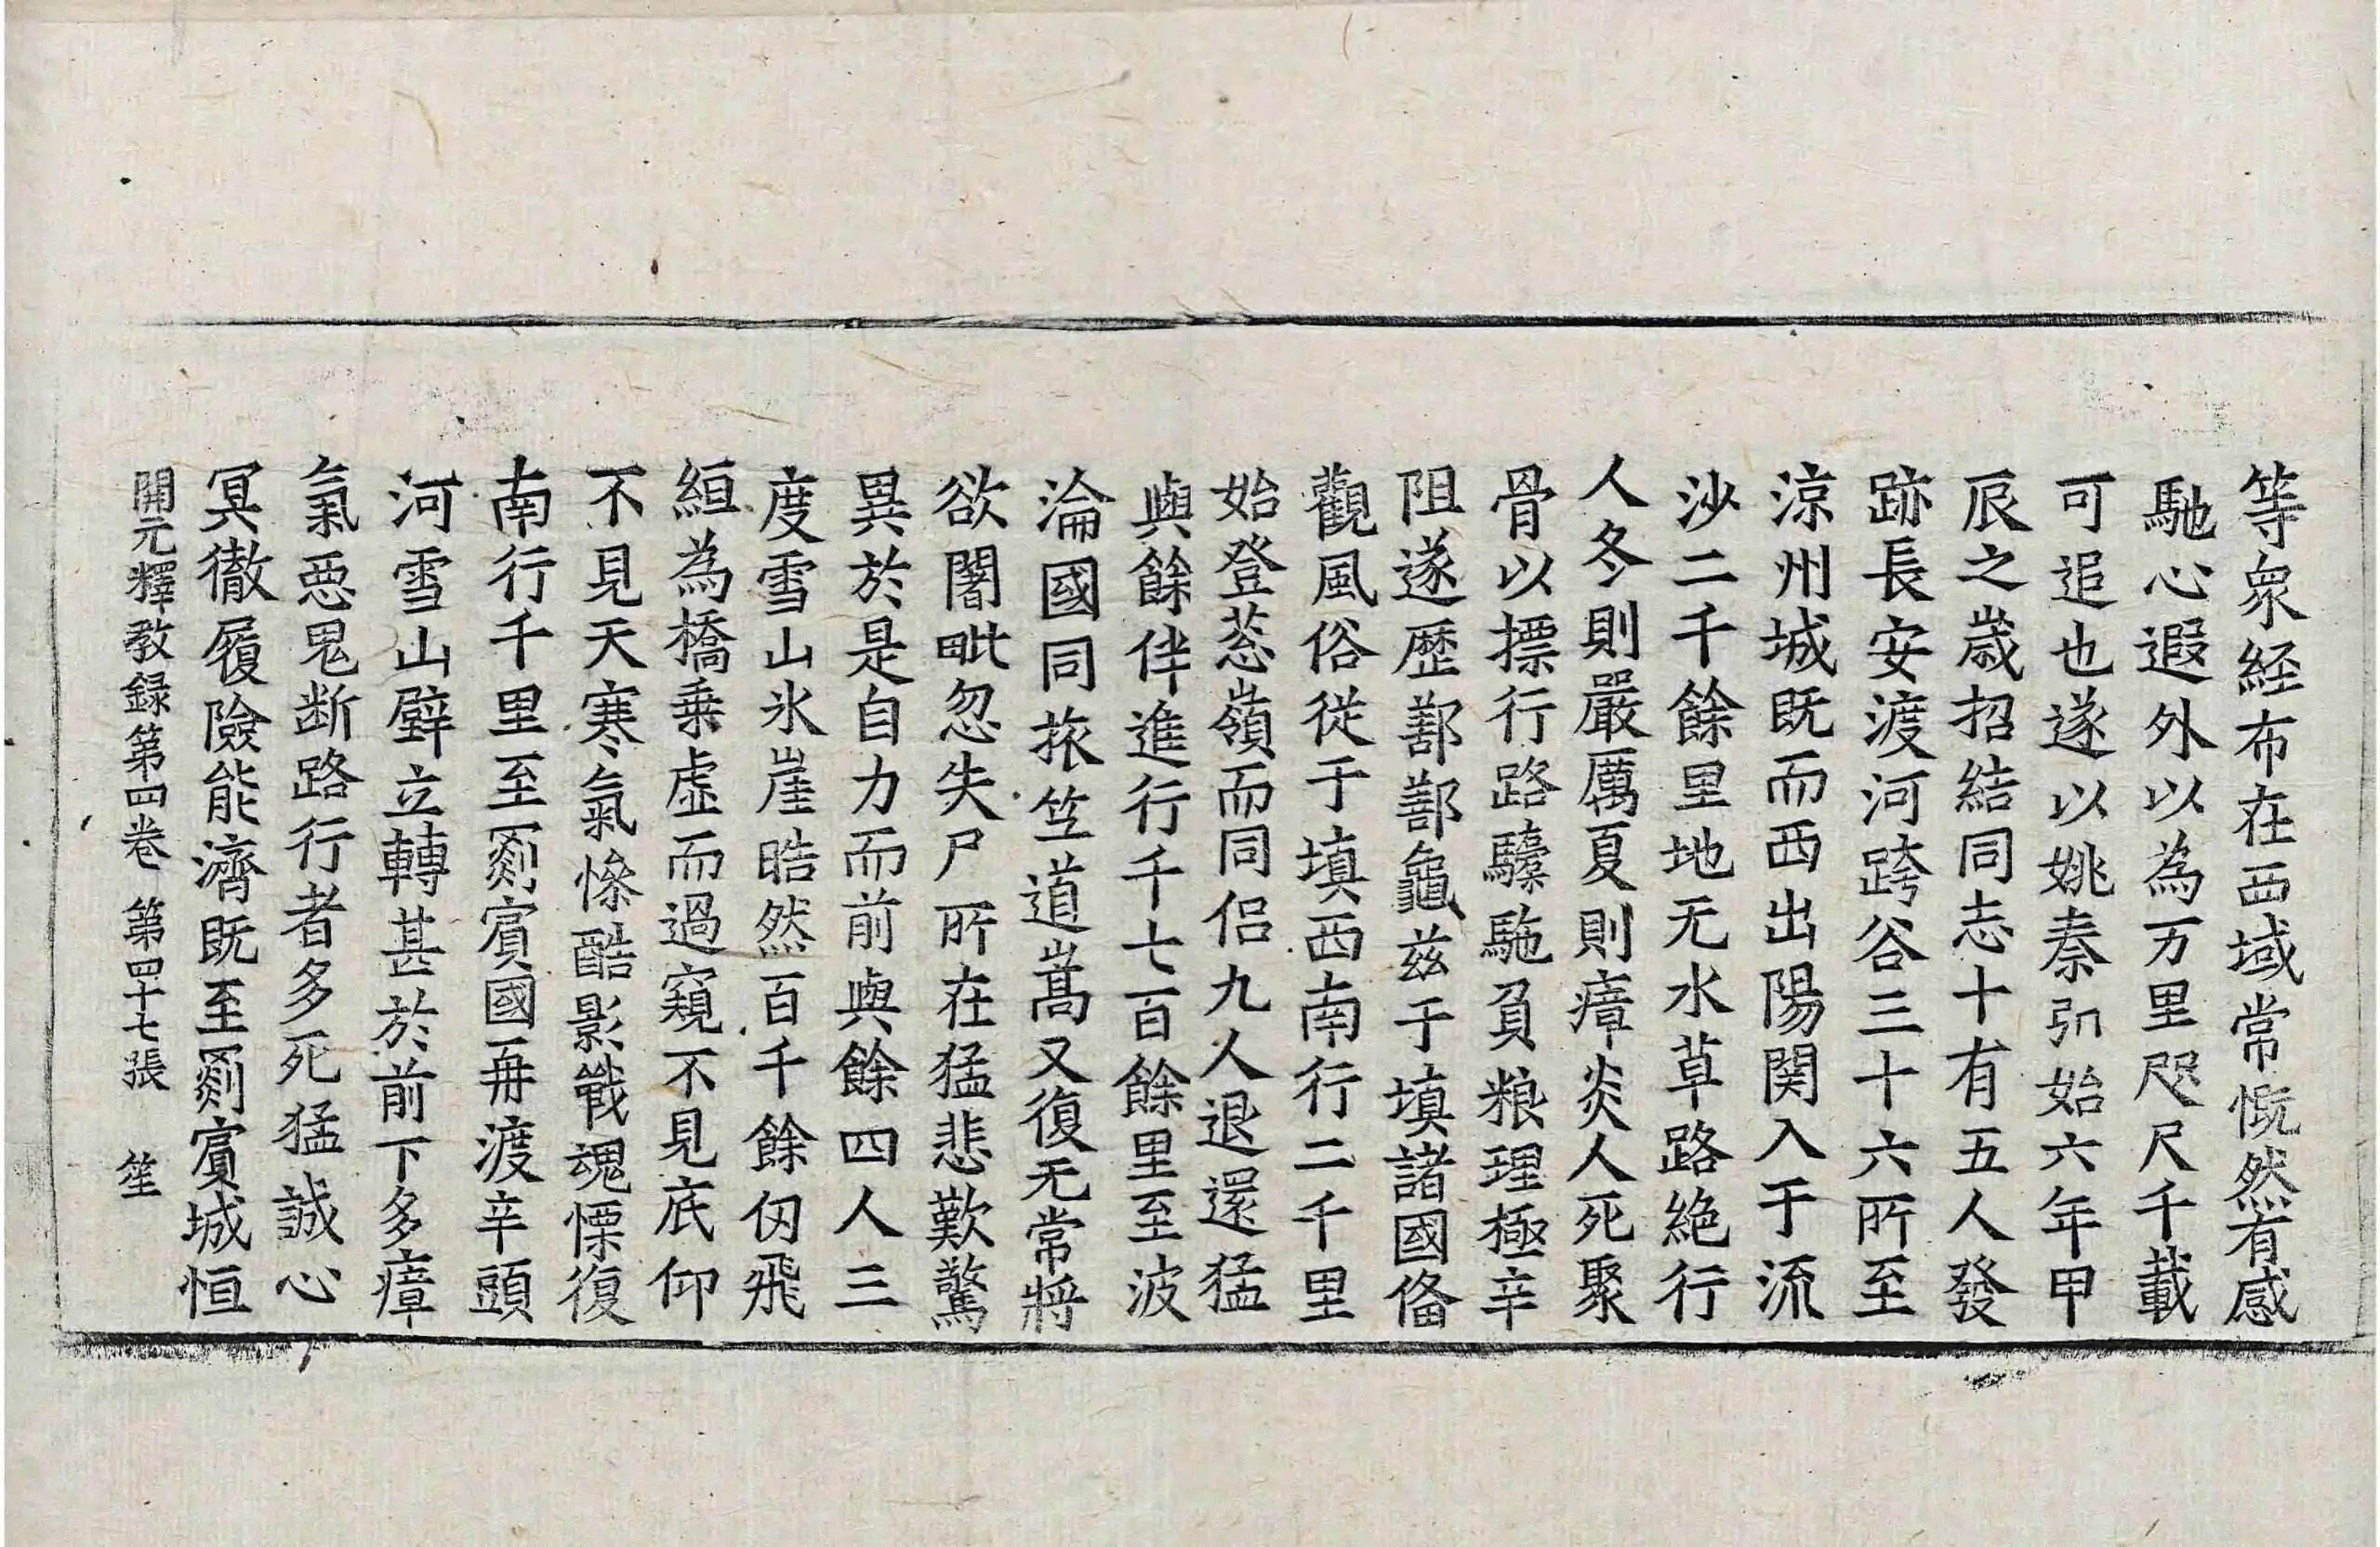 等衆経布在西域常慨然有感
馳心遐外以為万里咫尺千載
可追也遂以姚秦弘始六年甲
辰之歳招結同志十有五人發
跡長安渡河跨谷三十六所至
涼州城既而西出陽関入于流
沙二千餘里地无水草路絶行
人冬則嚴厲夏則瘴炎人死聚
骨以摽行路驝駞負粮理極辛
阻遂歴鄯鄯龜茲于填諸國俻
觀風俗從于填西南行二千里
始登葱嶺而同侣九人退還猛
與餘伴進行千七百餘里至波
淪國同旅竺道嵩又復无常將
欲闍毗忽失尸所在猛悲歎驚
異於是自力而前與餘四人三
度雪山氷崖晧然百千餘仭飛
絙為橋乗虚而過窺不見底仰
不見天寒氣慘酷影戰魂慄復
南行千里至罽賓國再渡辛頭
河雪山壁立轉甚於前下多瘴
氣惡鬼断路行者多死猛誠心
冥徹履險能濟既至罽賓城恒
開元釋教録第四卷 第四十七張 笙